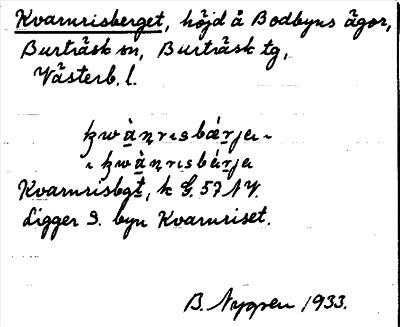 Kvarnrisberget, höjd å Bodbyns ägor,
Burträsk sn, Burträsk tg,
Västerb. l.
Kvarnrisbgt, k G. 57 NV.
Ligger S. byn Kvarnriset.
B. Nygren 1933.